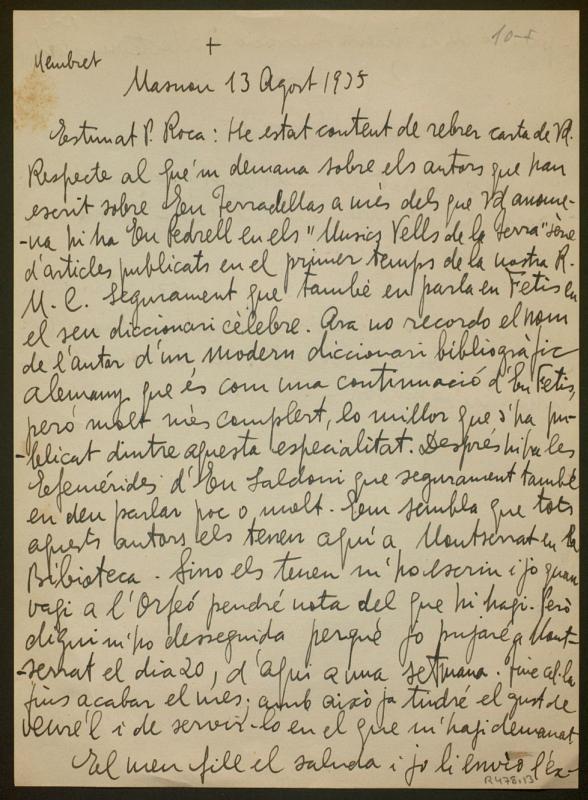 10-I
+
Membret
Masnou 13 Agost 1935
Estimat P. Roca: He estat content de rebrer carta de Vd.
Respecte al que'm demana sobre els autors que han
escrit sobre En Terradellas a més dels que Vd anome-
-na hi ha En Pedrell en els "Musics Vells de la Terra" sèrie
d'articles publicats en el primer temps de la nostra R.
M. C. Segurament que també en parla en Fetis en
el seu diccionari cèlebre. Ara no recordo el nom
de l'autor d'un modern diccionari bibliogràfic
alemany que és com una continuació d'En Fetis,
però molt més complert, lo millor que s'ha pu-
-blicat dintre aquesta especialitat. Després hi ha les
Efemérides d'En Saldoni que segurament també
en deu parlar poc o molt. Em sembla que tots
aquests autors els tenen aquí a Montserrat en la
Biblioteca. Sino els tenen m'ho escriu i jo quan
vagi a l'Orfeó pendré nota del que hi hagi. Però
digui m'ho desseguida perquè jo pujaré a Mont-
-serrat el dia 20, d'aqui a una setmana. Tinc cel·la
fins acabar el mes; amb això ja tindré el gust de
veure'l i de servir-lo en el que m'hagi demanat
El meu fill el saluda i jo li envio l'ex-
R478,13